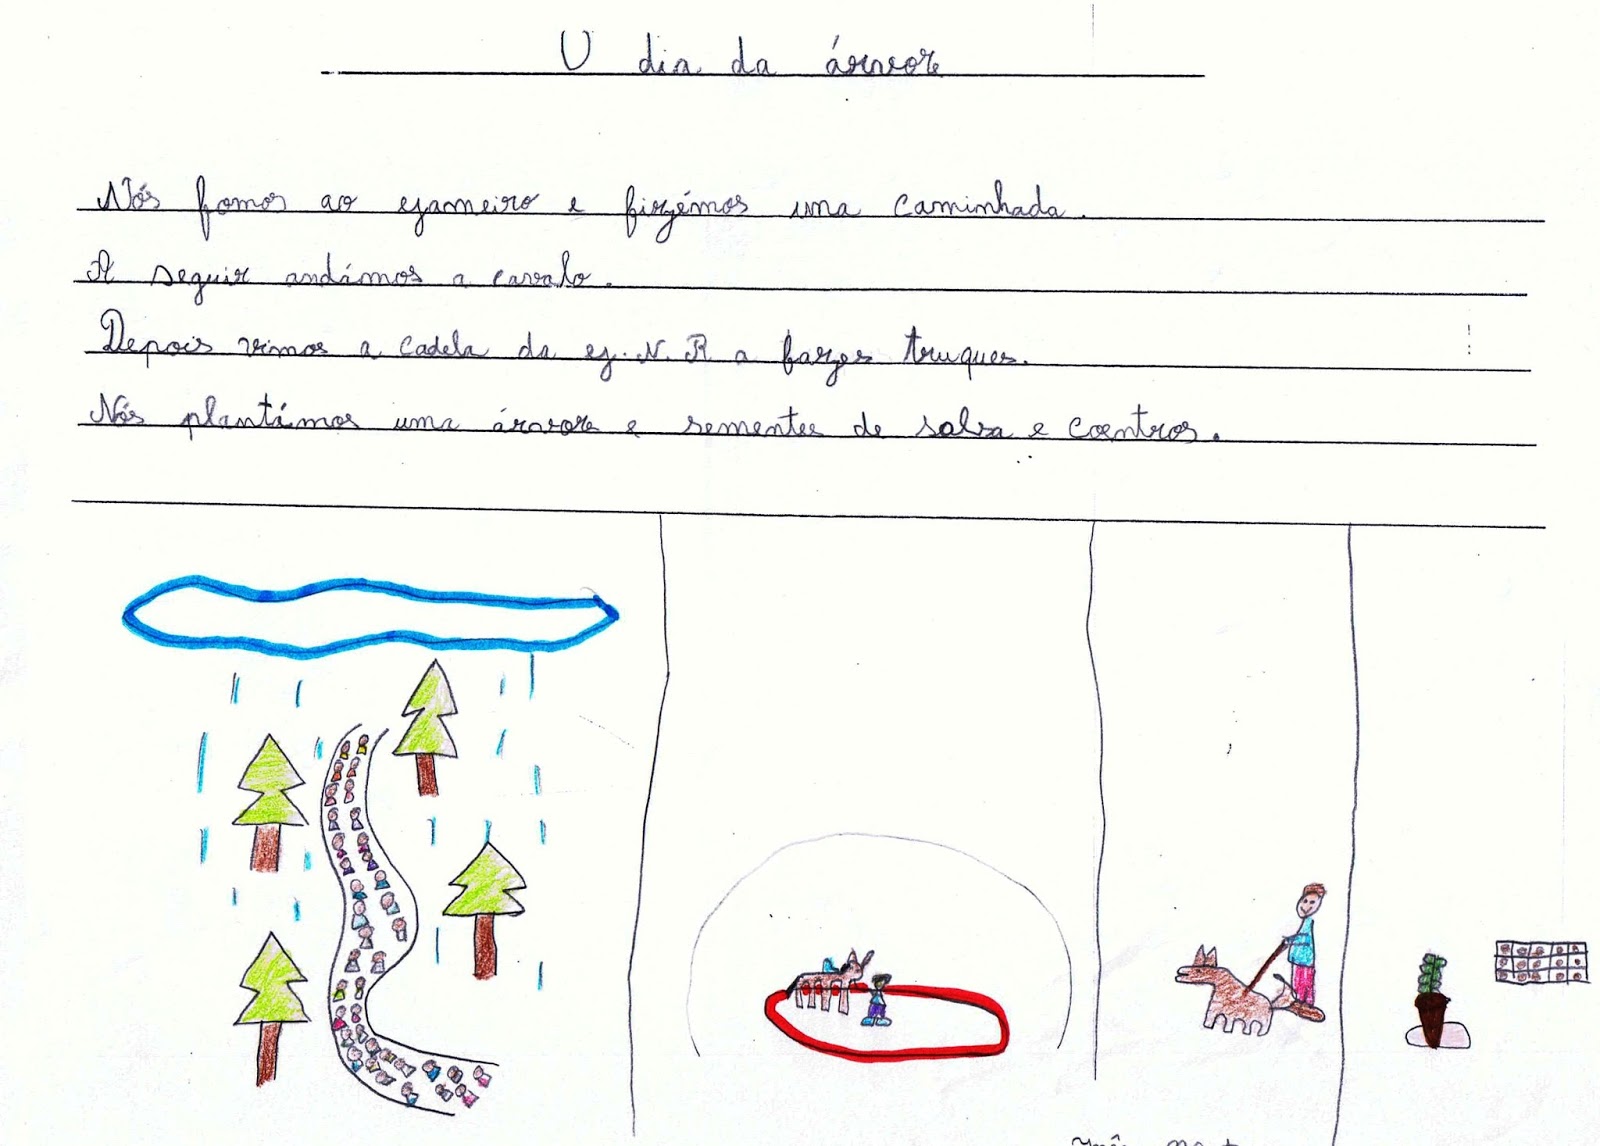 O dia da árvore
Nós fomos ao gameiro e fizémos uma caminhada.
A seguir andámos a cavalo.
Depois vimos a cadela da g.N.R a fazer truques.
Nós plantámos uma árvore e sementes de salsa e coentros.